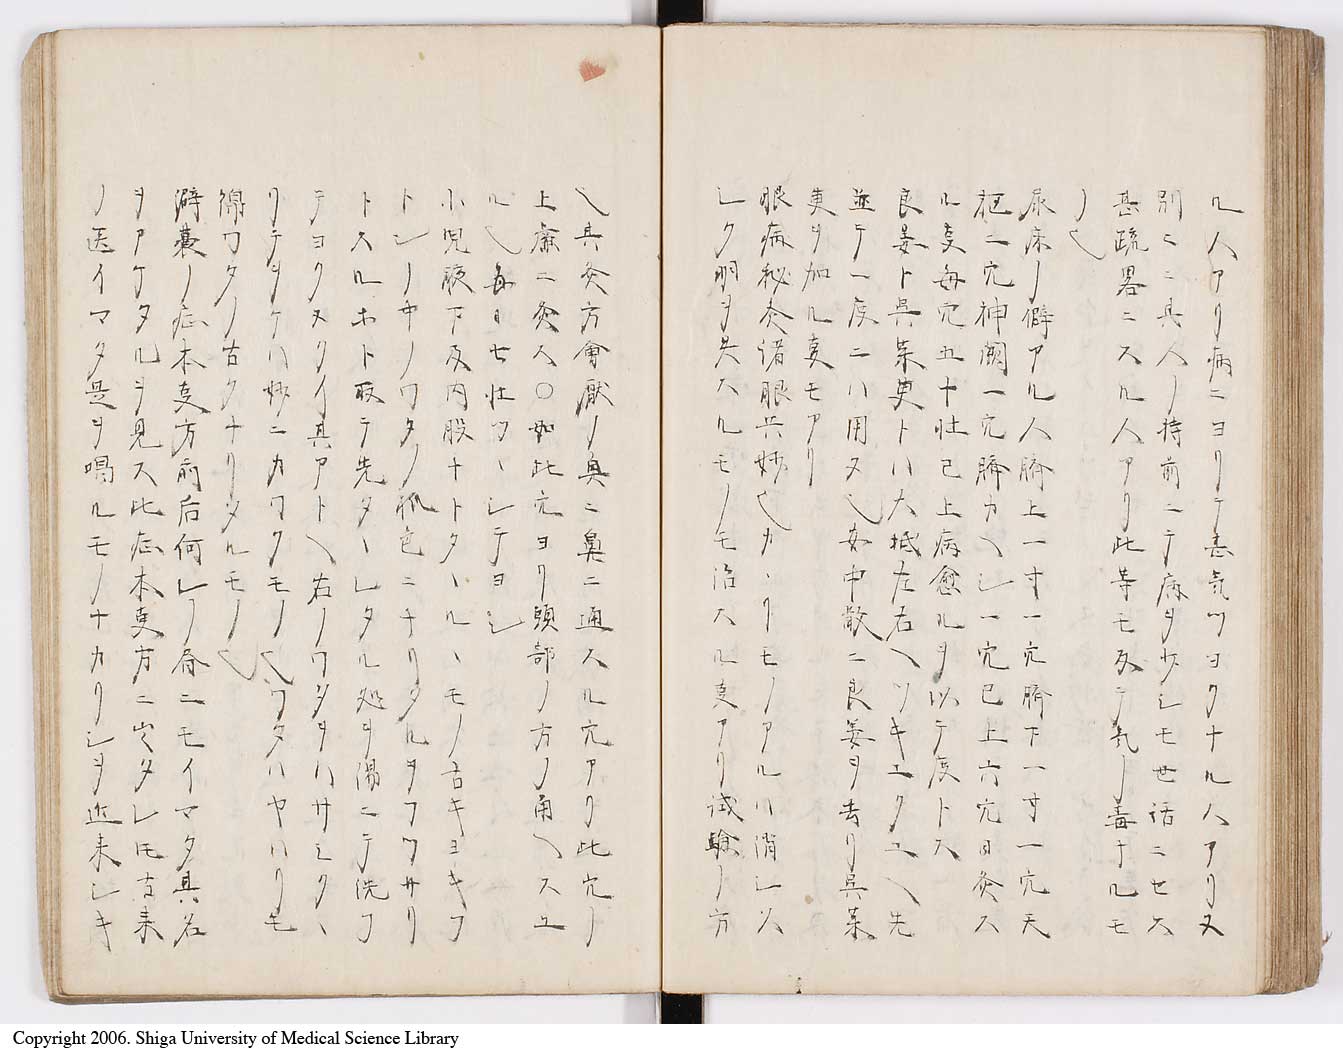 ル人アリ病ニヨリテ甚気ツヨクナル人アリ又
別ニ其人ノ持前ニテ病ヲ少シモ世話ニセス
甚疏畧ニスル人アリ此等モ反テ気ノ毒ナルモ
ノ也
尿床ノ癖アル人臍上一寸一穴臍下一寸一穴天
枢二穴神闕一穴臍カヘシ一穴已上六穴日灸ス
ル叓毎穴五十壮已上病愈ルヲ以テ度トス
良姜ト呉茱萸トハ大抵左右ヘツキユクユヘ先
並テ一度ニハ用ヌ也安中散ニ良姜ヲ去リ呉茱
萸ヲ加ル叓モアリ
眼病秘灸諸眼共妙也カヽリモノアルハ消シ久
シク明ヲ失スルモノモ治スル叓アリ試験ノ方
也其灸方會厭ノ奥ニ鼻ニ通スル穴アリ此穴ノ
上廉ニ灸ス〇如此穴ヨリ頭部ノ方ノ角ヘスユ
ル也毎日七壮ツヽシテヨシ
小児腋下及内股ナトタヽルヽモノ古キヨキフ
トンノ中ノワタノ狐色ニナリタルヲフワサリ
トスルホト取テ先タヽレタル処ヲ湯ニテ洗フ
テヨクヌクイ其アトヘ右ノワタヲハサミクヽ
リテヲケハ妙ニカワクモノ也ワタハヤハリモ
綿ワタノ古クナリタルモノ也
澼嚢ノ症本叓方前后何レノ書ニモイマタ其名
ヲアケタルヲ見ス此症本叓方ニ出タレ𪜈古来
ノ医イマタ是ヲ唱ルモノナカリシヲ近来シキ
Copyright 2006. Shiga University of Medical Science Library